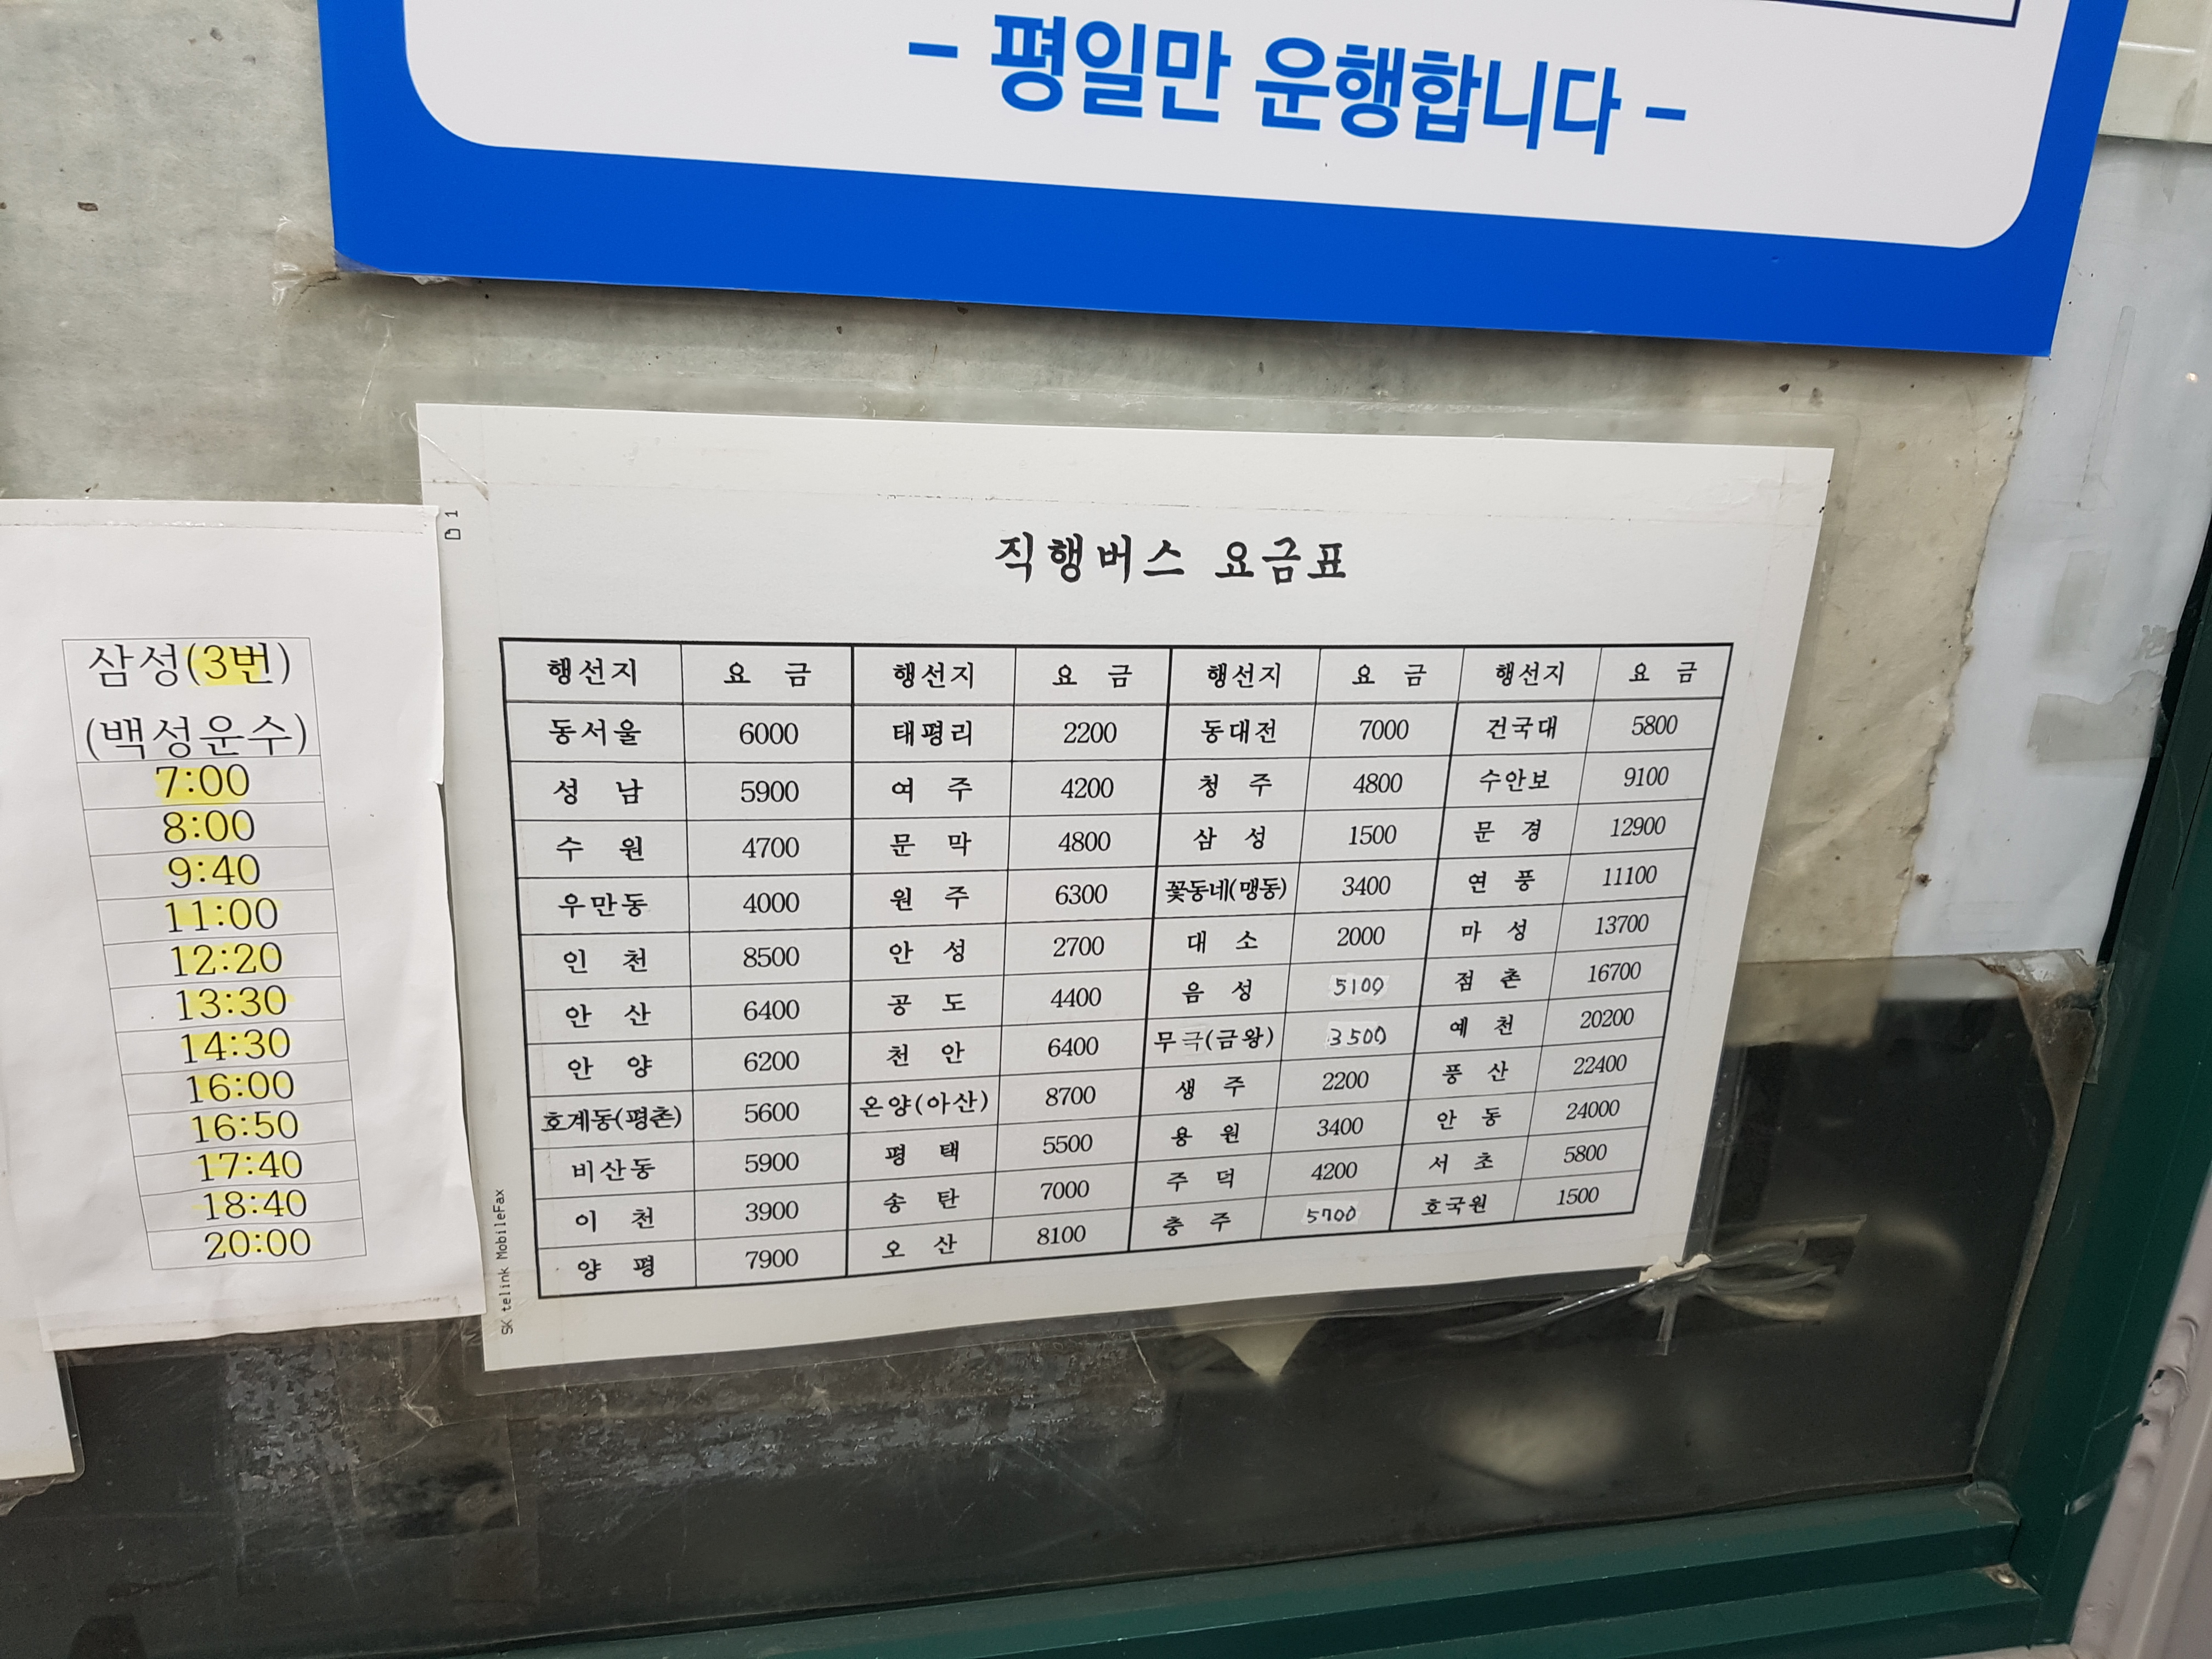 - 평일만 운행합니다 -
삼성(3번)
(백성운수)
7:00
8:00
9:40
11:00
12:20
13:30
14:30
16:00
16:50
17:40
18:40
20:00
1
SK telink MobileFax
직행버스 요금표
행선지 요 금 행선지 요 금 행선지 요 금 행선지 요 금
동서울 6000 태평리 2200 동대전 7000 건국대 5800
성 남 5900 여 주 4200 청 주 4800 수안보 9100
수 원 4700 문 막 4800 삼 성 1500 문 경 12900
우만동 4000 원 주 6300 꽃동네(맹동) 3400 연 풍 11100
인 천 8500 안 성 2700 대 소 2000 마 성 13700
안 산 6400 공 도 4400 음 성 5100 점 촌 16700
안 양 6200 천 안 6400 무극(금왕) 3500 예 천 20200
호계동(평촌) 5600 온양(아산) 8700 생 주 2200 풍 산 22400
비산동 5900 평 택 5500 용 원 3400 안 동 24000
이 천 3900 송 탄 7000 주 덕 4200 서 초 5800
양 평 7900 오 산 8100 충 주 5700 호국원 1500